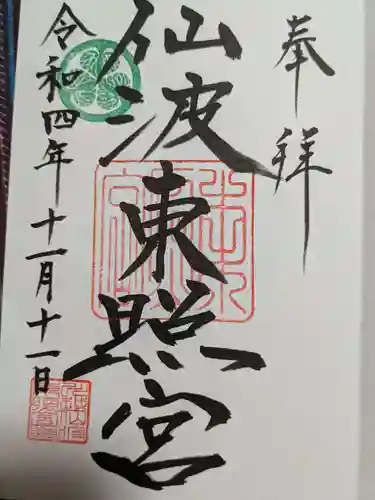 奉拝
仙波東照宮
令和四年十一月十一日